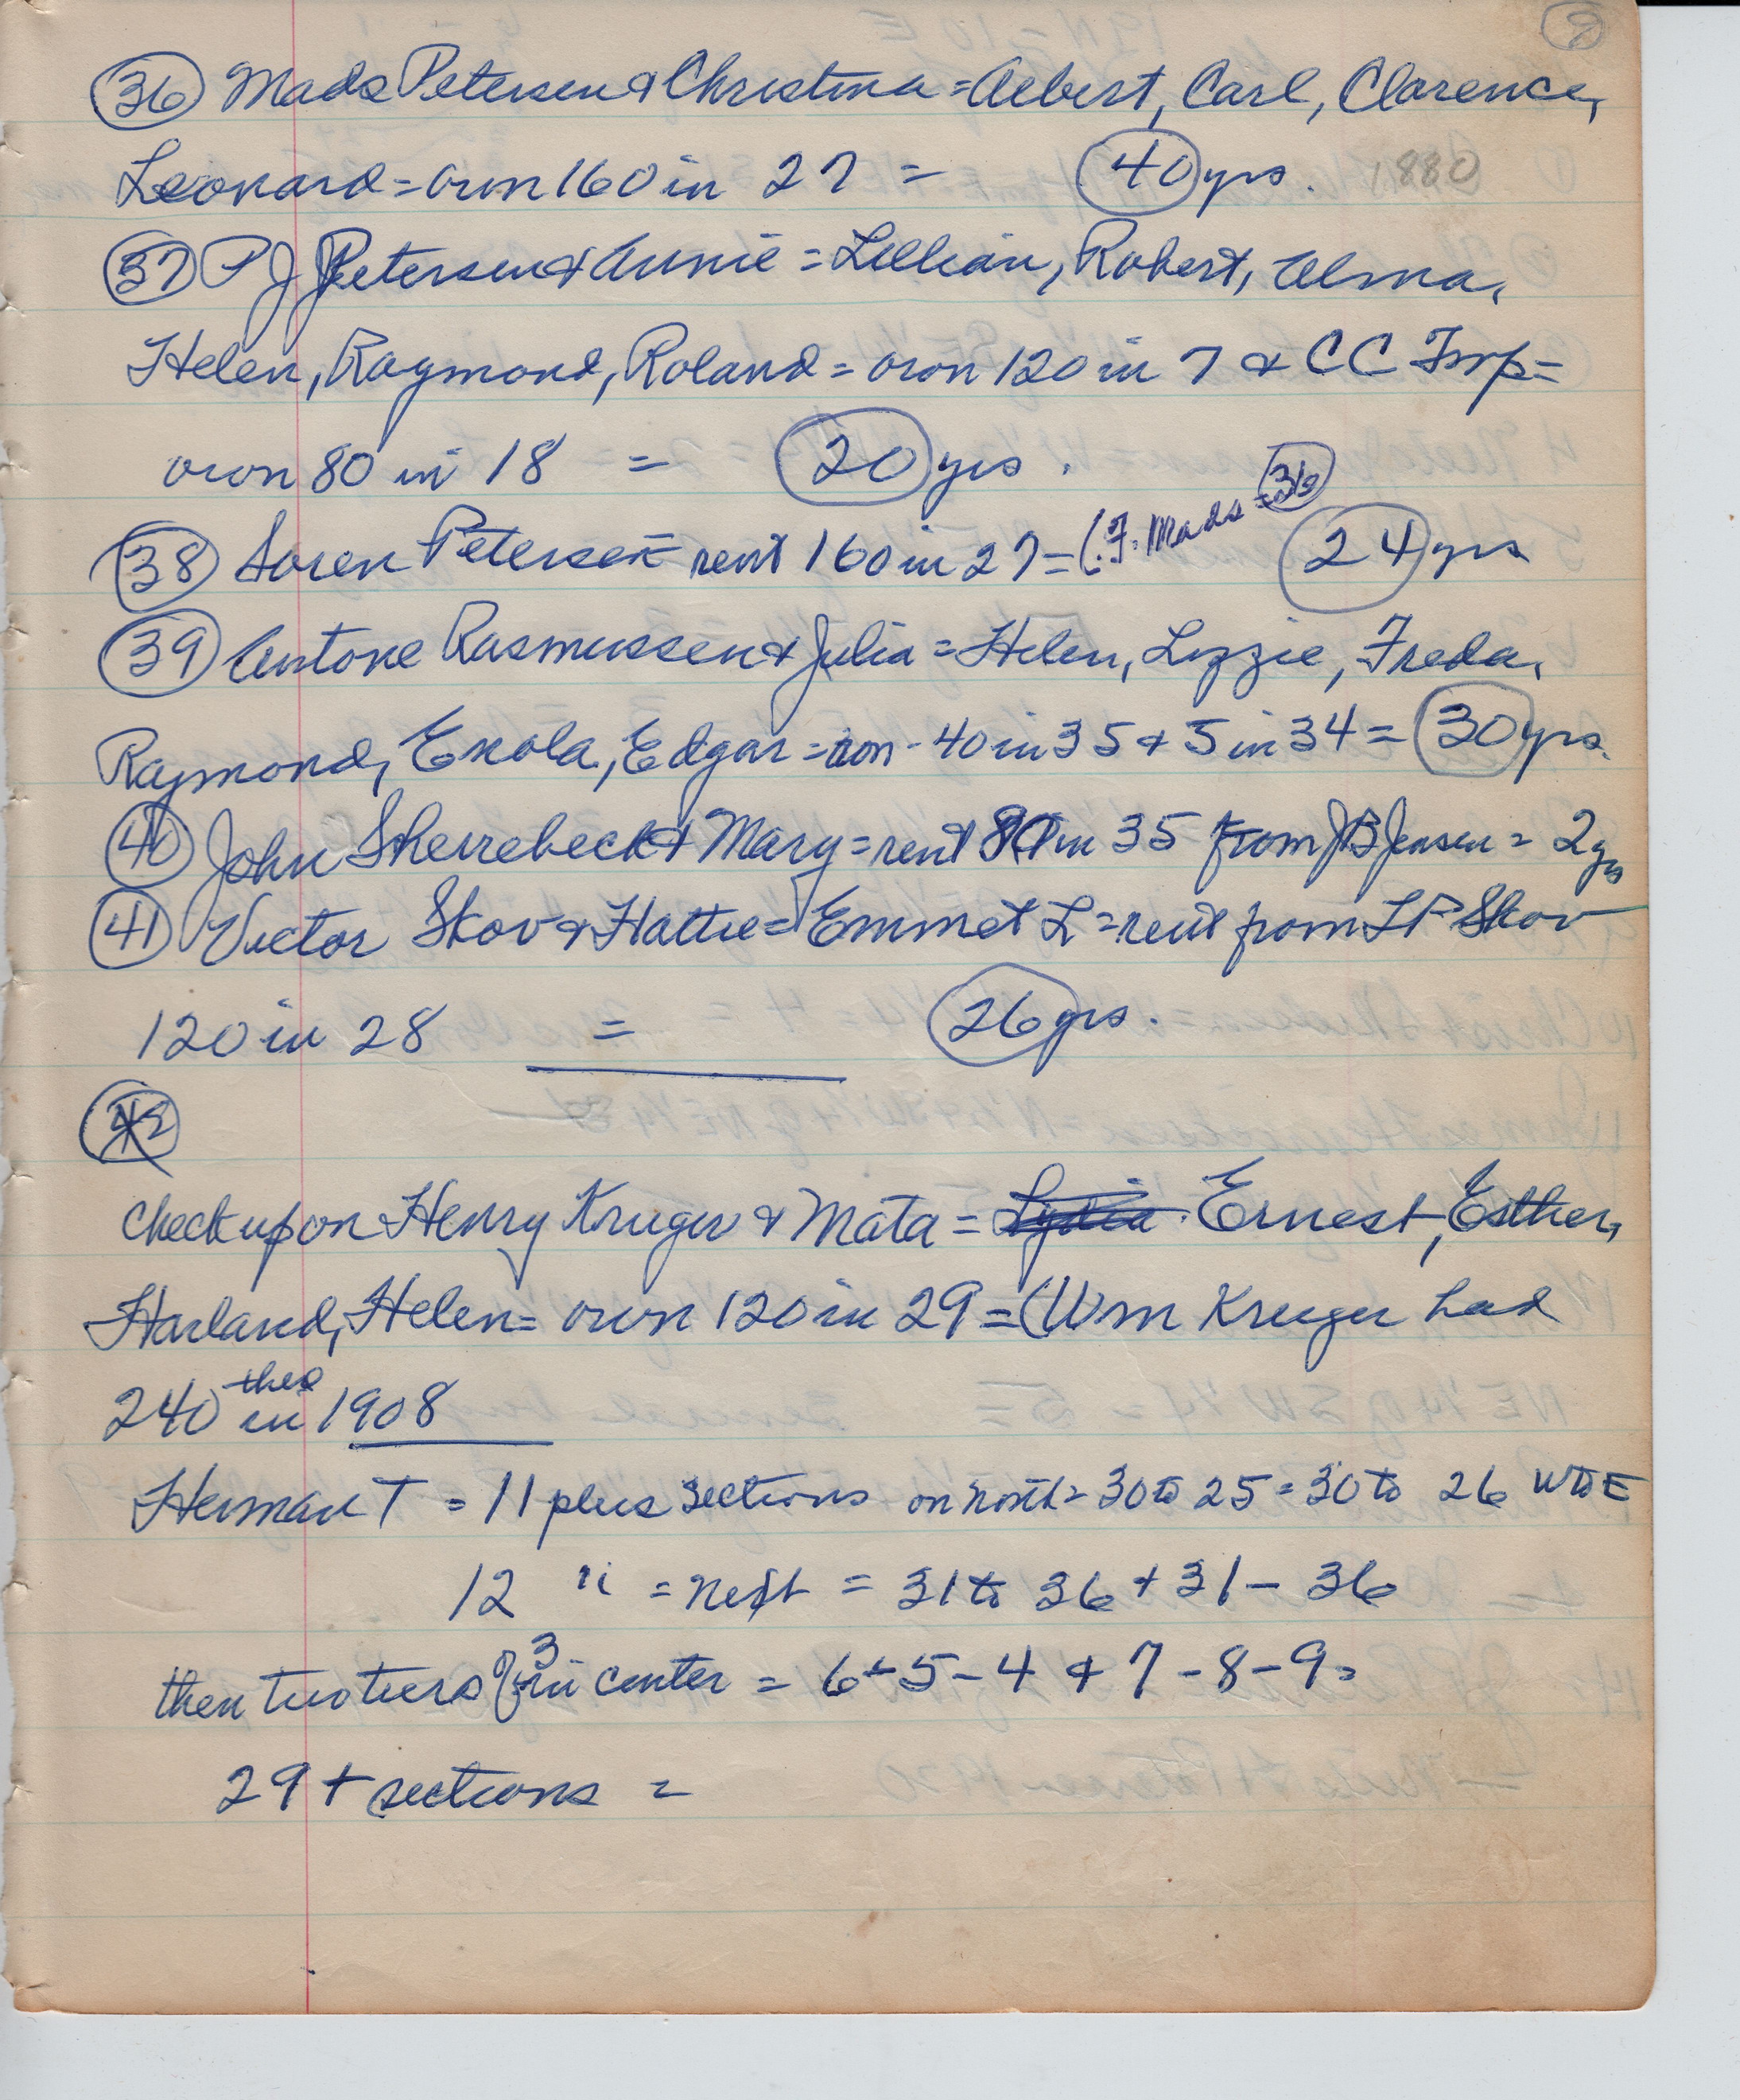 9
36 Mads Petersen & Christina = Albert, Carl, Clarence,
Leonard = own 160 in 27 = 40 yrs. 1880
37 P J Petersen & Annie = Lillian, Robert, Alma,
Helen, Raymond, Roland = own 120 in 7 & CC Twp =
own 80 in 18 = 20 yrs.
38 Soren Petersen = rent 160 in 27 = (F. Mads = 36 24 yrs
39 Antone Rasmussen & Julia = Helen, Lizzie, Freda,
Raymond, Enola, Edgar = own - 40 in 35 & 5 in 34 = 30 yrs.
40 John Sherrebeck & Mary = rent 80 in 35 from JB Jensen = 2 yrs
41 Victor Skov & Hattie = Emmet L = rent from LP Skov
120 in 28 = 26 yrs.
42
Check up on Henry Kruger & Mata = Lydia. Ernest, Esther,
Harland, Helen = own 120 in 29 = (Wm Kruger had
240 there in 1908
Herman T = 11 plus sections on north = 30 to 25 = 30 to 26 W to E
12 " = next = 31 to 36 + 31 - 36
then two tiers of 3 in center = 6 - 5 - 4 & 7 - 8 - 9 =
29 + sections =